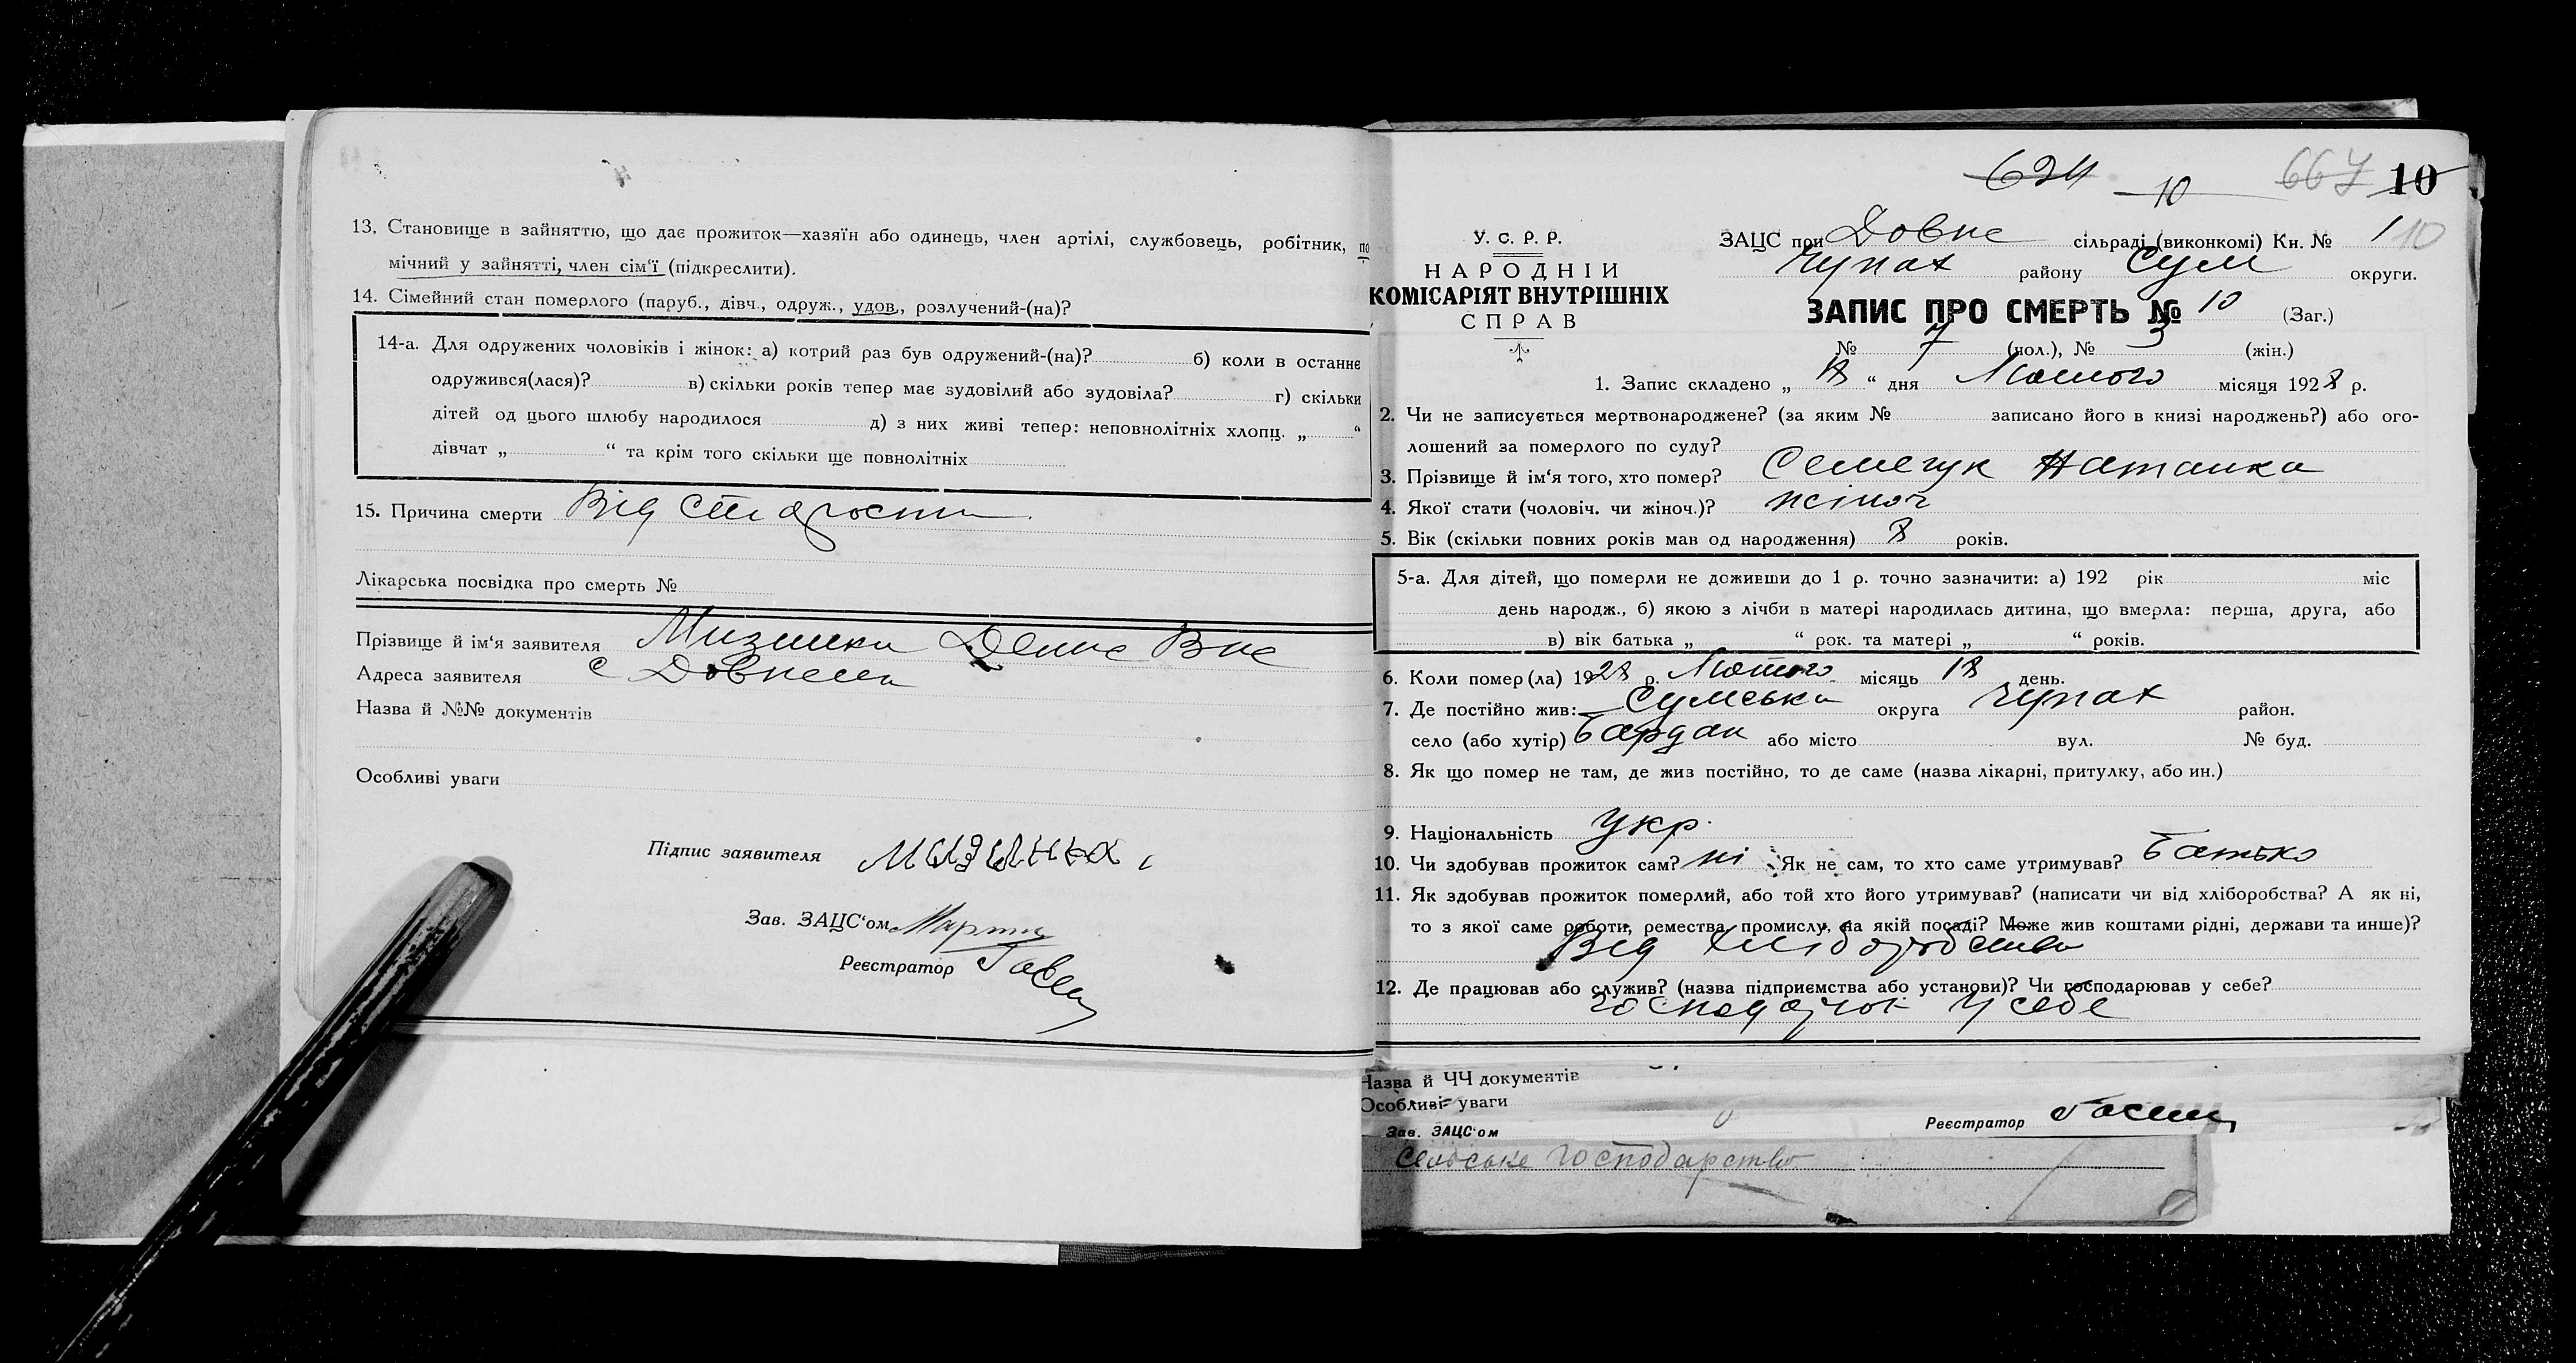 13. Становище в зайняттю, що дає прожиток—хазяїн або одинець, член артілі, службовець, робітник, по
мічний у зайнятті, член сім'ї (підкреслити).
14. Сімейний стан померлого (паруб., дівч., одруж., удов., розлучений-(на)?
14-а. Для одружених чоловіків і жінок: а) котрий раз був одружений-(на)? б) коли в останнє
одружився(лася)? в) скільки років тепер має зудовілий або зудовіла? г) скільки
дітей од цього шлюбу народилося д) з них живі тепер: неповнолітніх хлопц. „ “
дівчат „ “ та крім того скільки ще повнолітніх
15. Причина смерти Від старости
Лікарська посвідка про смерть №
Прізвище й ім'я заявителя Денис
Адреса заявителя с
Назва й №№ документів
Особливі уваги
Підпис заявителя
Зав. ЗАЦС'ом
Реєстратор
624 10 667 10
У. С. Р. Р.
НАРОДНІЙ
КОМІСАРІЯТ ВНУТРІШНІХ
СПРАВ
ЗАЦС при Довне сільраді (виконкомі) Кн. № 1 10
Чупах району Сум округи.
ЗАПИС ПРО СМЕРТЬ № 10 (Заг.)
№ 7 (чол.), № 3 (жін.)
1. Запис складено „ 18 “ дня Лютого місяця 1928 р.
2. Чи не записується мертвонароджене? (за яким № записано його в книзі народжень?) або ого-
лошений за померлого по суду?
3. Прізвище й ім'я того, хто помер? Наталка
4. Якої стати (чоловіч. чи жіноч.)? жіноч
5. Вік (скільки повних років мав од народження) 8 років.
5-а. Для дітей, що померли не доживши до 1 р. точно зазначити: а) 192 рік міс
день народж., б) якою з лічби в матері народилась дитина, що вмерла: перша, друга, або
в) вік батька „ “ рок. та матері „ “ років.
6. Коли помер (ла) 1928 р. Лютого місяць 18 день.
7. Де постійно жив: Сумська округа Чупах район.
село (або хутір) Бардак або місто вул. № буд.
8. Як що помер не там, де жив постійно, то де саме (назва лікарні, притулку, або ин.)
9. Національність Укр.
10. Чи здобував прожиток сам? ні Як не сам, то хто саме утримував? Батько
11. Як здобував прожиток померлий, або той хто його утримував? (написати чи від хліборобства? А як ні,
то з якої саме роботи, ремества, промислу, на якій посаді? Може жив коштами рідні, держави та инше)?
Від хліборобства
12. Де працював або служив? (назва підприємства або установи)? Чи господарював у себе?
у себе
Назва й ЧЧ документів
Особливі уваги
Зав. ЗАЦС'ом Реєстратор
Сельське господарство